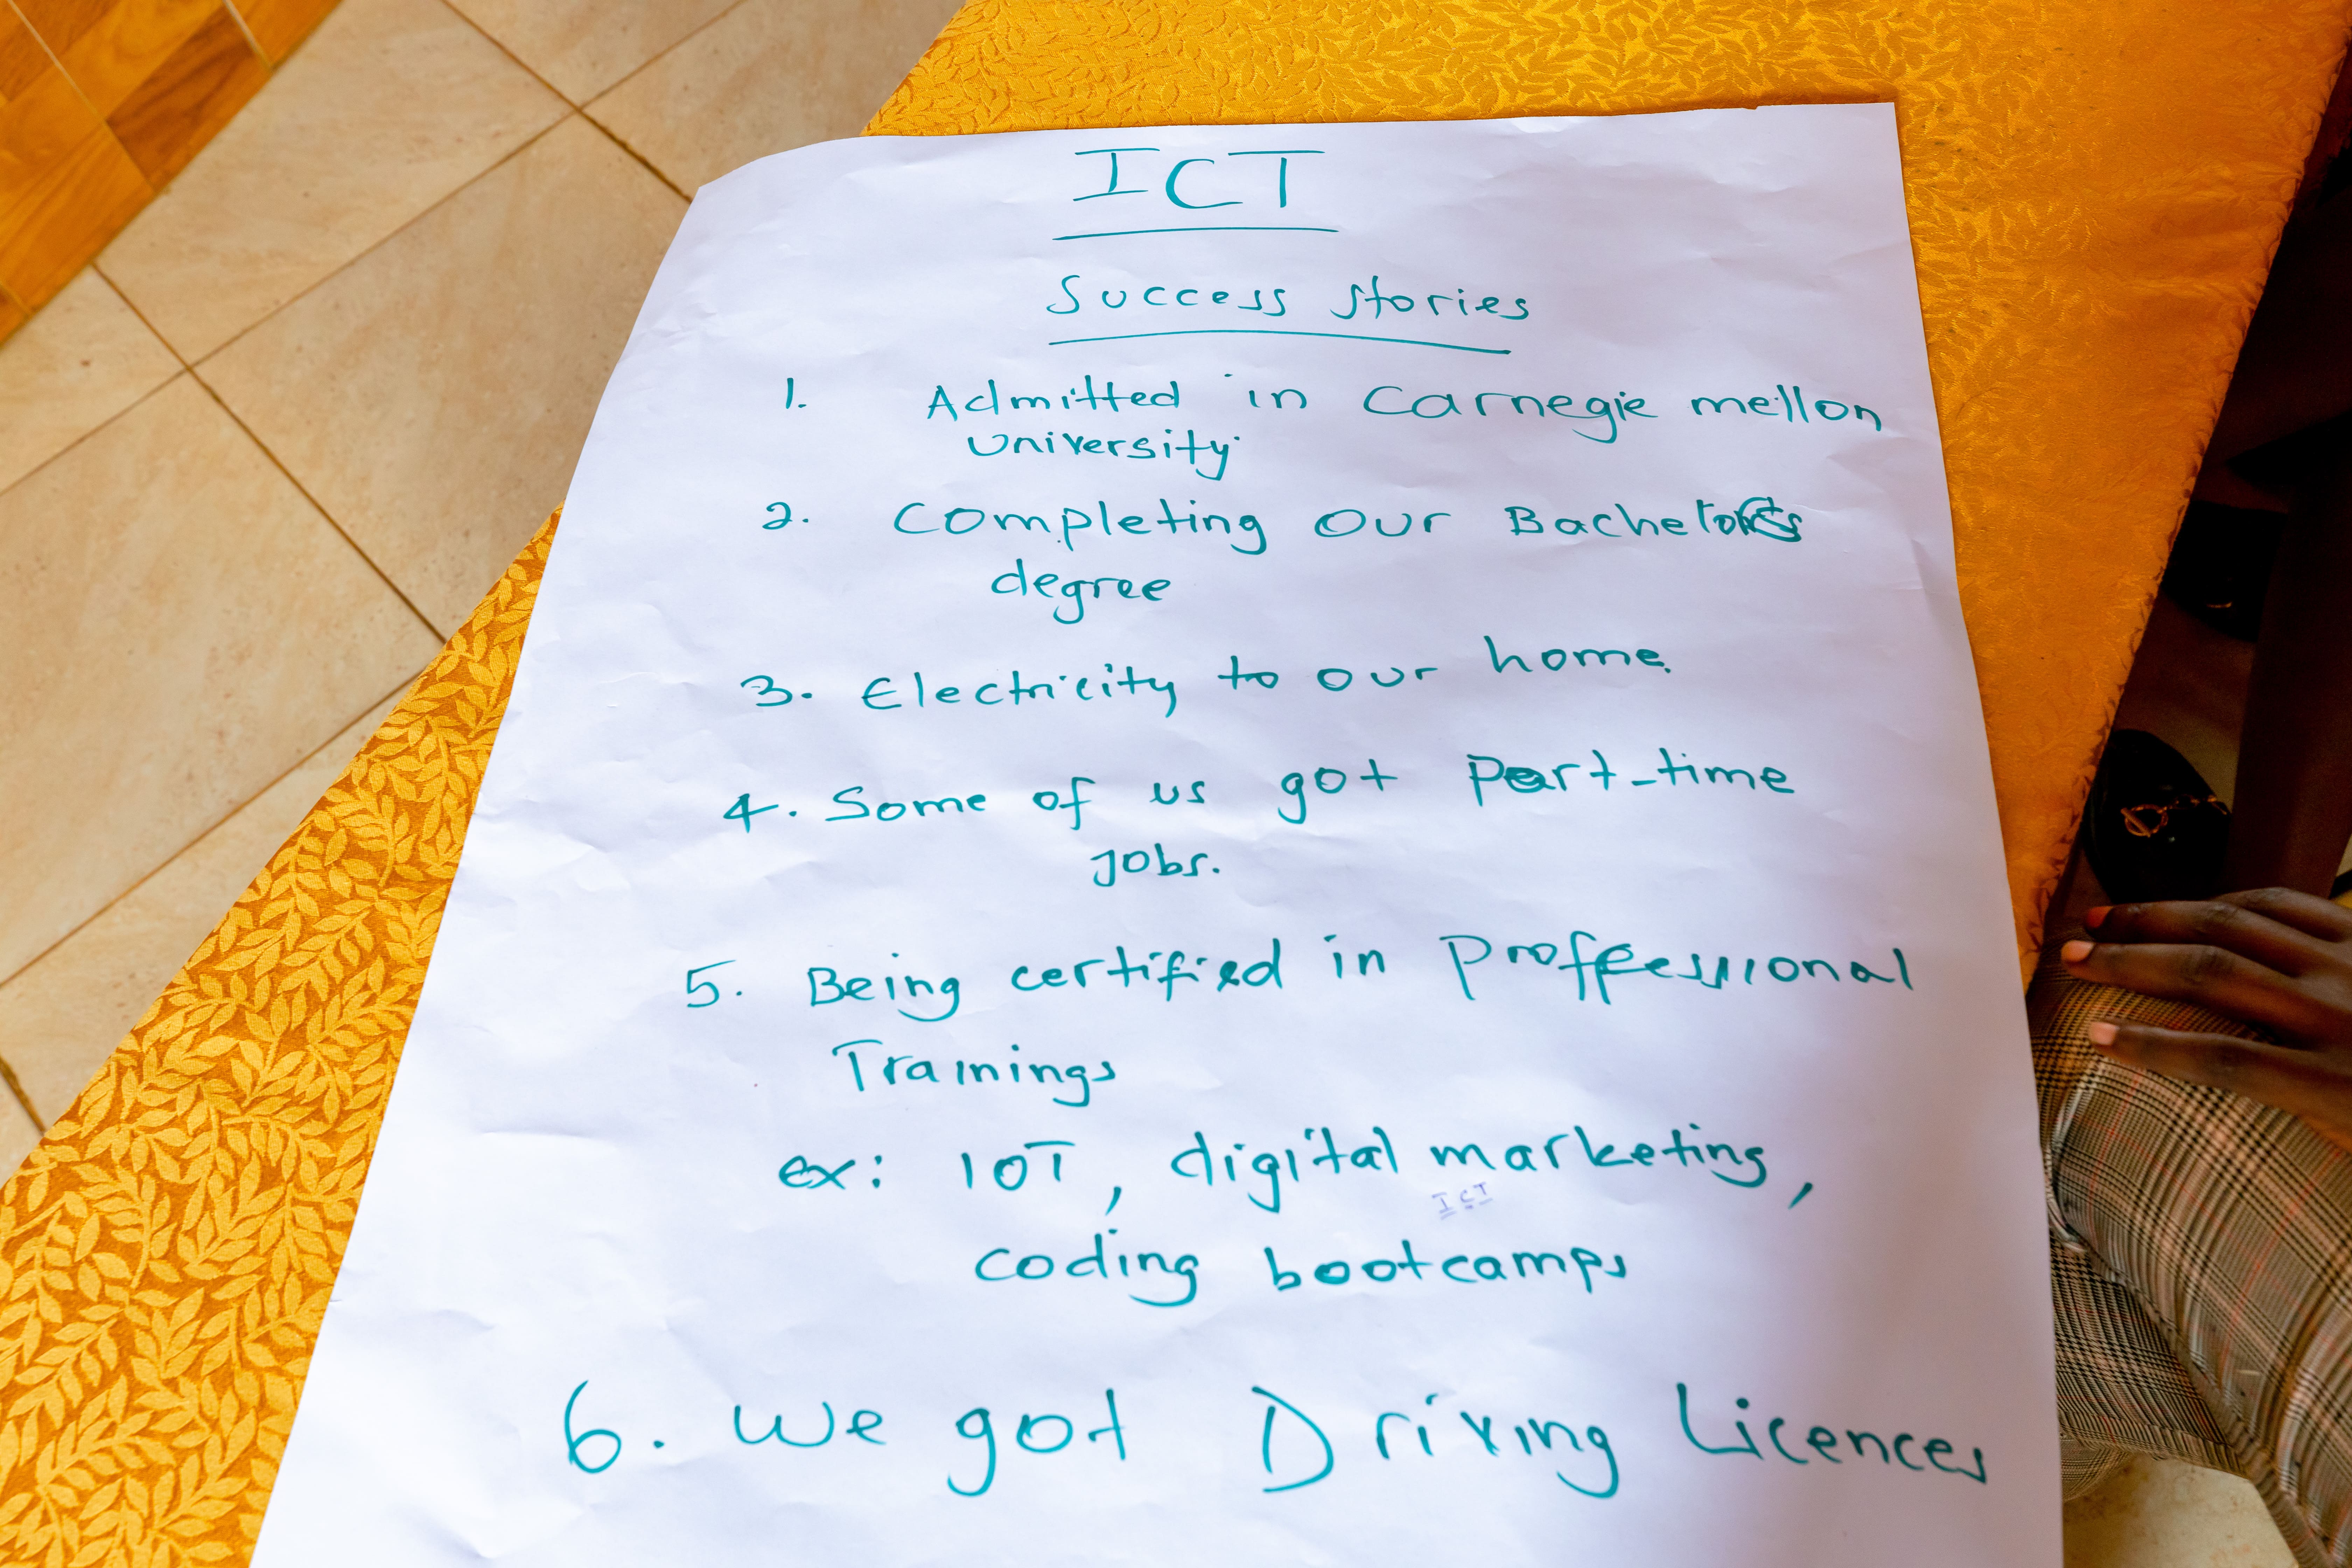 ICT
Success stories
1. Admitted in Carnegie mellon
University.
2. Completing our Bachelors
degree
3. Electricity to our home.
4. Some of us got part-time
jobs.
5. Being certified in proffessional
Trainings
ex: IOT, digital marketing,
ICT
coding bootcamps
6. We got Driving Licences